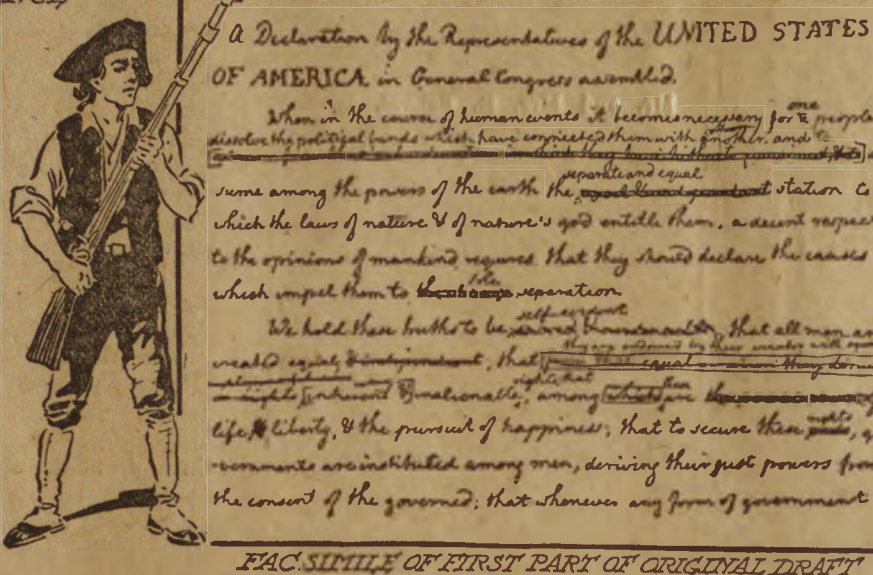 a Declaration by the Representatives of the UNITED STATES
OF AMERICA in General Congress assembled.
When in the course of human events it becomes necessary for one people
dissolve the political bands which have connected them with another, and
separate and equal
sume among the powers of the earth the station to
which the laws of nature & of nature's god entitle them, a decent respect
to the opinions of mankind requires that they should declare the causes
which impel them to the separation.
self-evident
We hold these truths to be that all men are
they are endowed by their creator with
created equal, that equal
rights that
inherent & inalienable, among which are
life, liberty, & the pursuit of happiness; that to secure these rights, go
vernments are instituted among men, deriving their just powers from
the consent of the governed; that whenever any form of government
FAC SIMILE OF FIRST PART OF ORIGINAL DRAFT